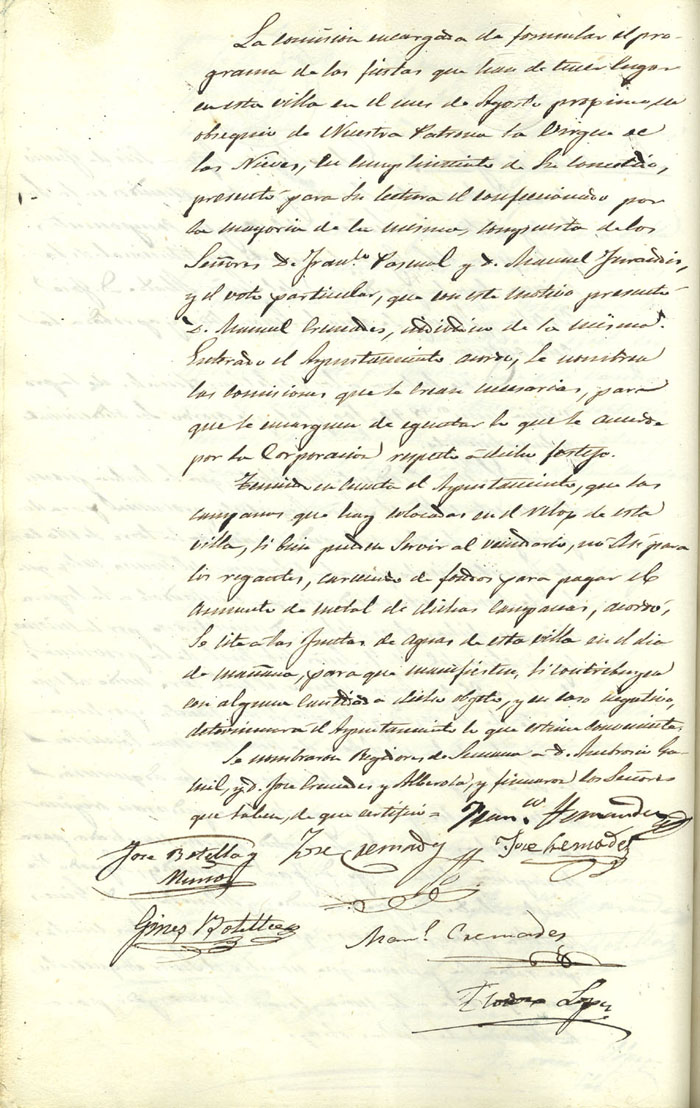 La comision encargada de formular el pro-
grama de las fiestas que han de tener lugar
en esta villa en el mes de Agosto proximo, en
obsequio de Nuestra Patrona la Virgen de
las Nieves, en cumplimiento de su cometido,
presentó para su lectura el confeccionado por
la mayoria de la misma, compuesta de los
Señores D. Fran.co Pascual y D. Manuel
y el voto particular, que con este motivo presentó
D. Manuel Cremades, individuo de la misma.
Enterado el Ayuntamiento acordó, se nombren
las comisiones que se crean necesarias, para
que se encarguen de egecutar lo que se acuerde
por la Corporacion respeto a dicho festejo.
Teniendo en cuenta el Ayuntamiento, que las
campanas que hay colocadas en el relox de esta
villa, si bien pueden servir al vecindario, no asi para
los regantes, careciendo de fondos para pagar el
aumento de metal de dichas campanas, acordó,
se cite a las Juntas de aguas de esta villa en el dia
de mañana, para que manifiesten, si contribuyen
con alguna cantidad a dicho objeto, y en caso negativo,
determinará el Ayuntamiento lo que estime conveniente.
Se nombraron Regidores de Semana a D. Ambrosio Ga-
mil, y D. Jose Cremades y Alberola, y firmaron los Señores
que saben, de que certifico =
Fran.co Hernandez
Jose Botella y
Muñoz
Jose Cremades
Jose Cremades
Gines Botella
Man.l Cremades
Teodoro Lopez